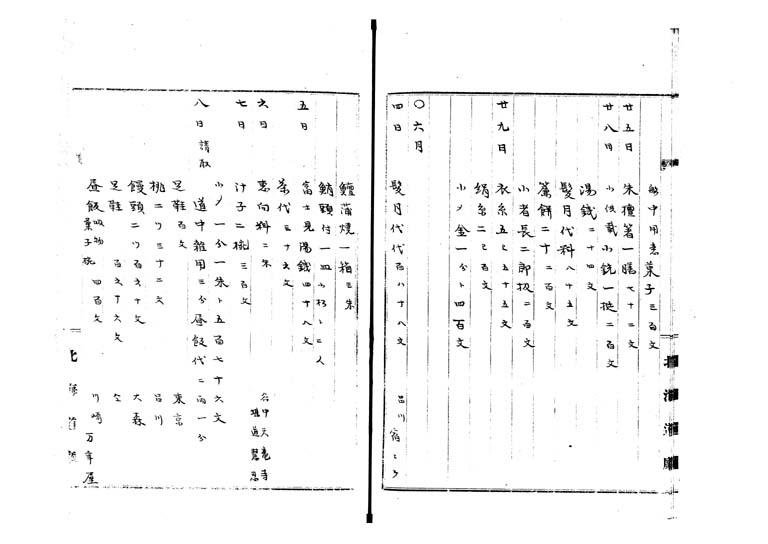 船中用意菓子 三百文
廿五日 朱檀箸一膳 七十二文
廿八日 小銃一挺 二百文
湯銭 二十四文
髪月代料 八十五文
薦餅二十 二百文
小者長二郎扱 二百文
廿九日 衣糸五ツ 五十五文
絹糸二ツ 百文
小〆金一分ト四百文
〇六月
四日 髪月代代 百八十八文 品川宿
鰻蒲焼一箱 三朱
鮹頭付一皿
五日 富士見湯銭 四十八文
茶代 三十六文
六日 恵向料 二朱 谷中天竜寺
七日 汁子二椀 三百文
小〆一分一朱ト五百七十六文
八日 請取 道中雑用三分昼飯代二両一分
足鞋 百文 東京
桃二ツ 三十二文 品川
饅頭二ツ 百六十文 大森
足鞋 百六十六文 仝
昼飯 吸物 菓子椀 四百文 川崎 万年屋
北海道庁
北海道庁